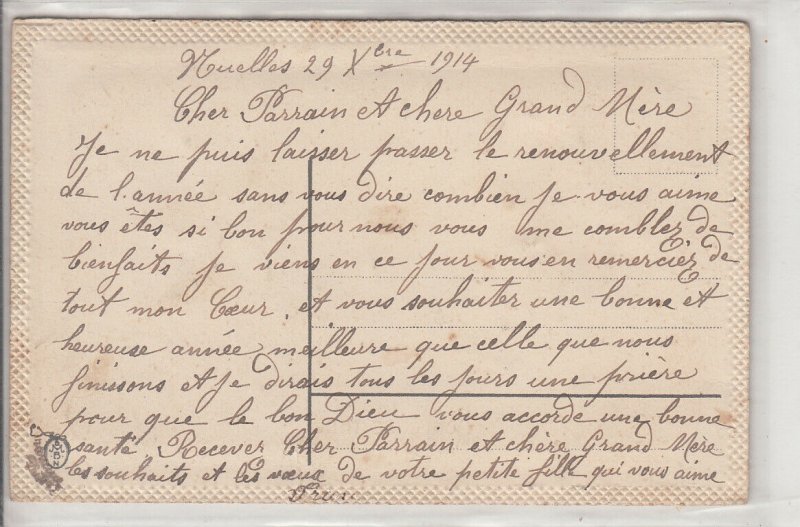 Nuelles 29 Xbre 1914
Cher Parrain et chère Grand Mère
Je ne puis laisser passer le renouvellement
de l'année sans vous dire combien Je vous aime
vous êtes si bon pour nous vous me comblez de
bienfaits Je viens en ce Jour vous en remerciez de
tout mon Cœur, et vous souhaiter une bonne et
heureuse année meilleure que celle que nous
finissons et Je dirais tous les Jours une prière
pour que le bon Dieu vous accorde une bonne
santé Recever Cher Parrain et chère Grand Mère
les souhaits et les vœux de votre petite fille qui vous aime